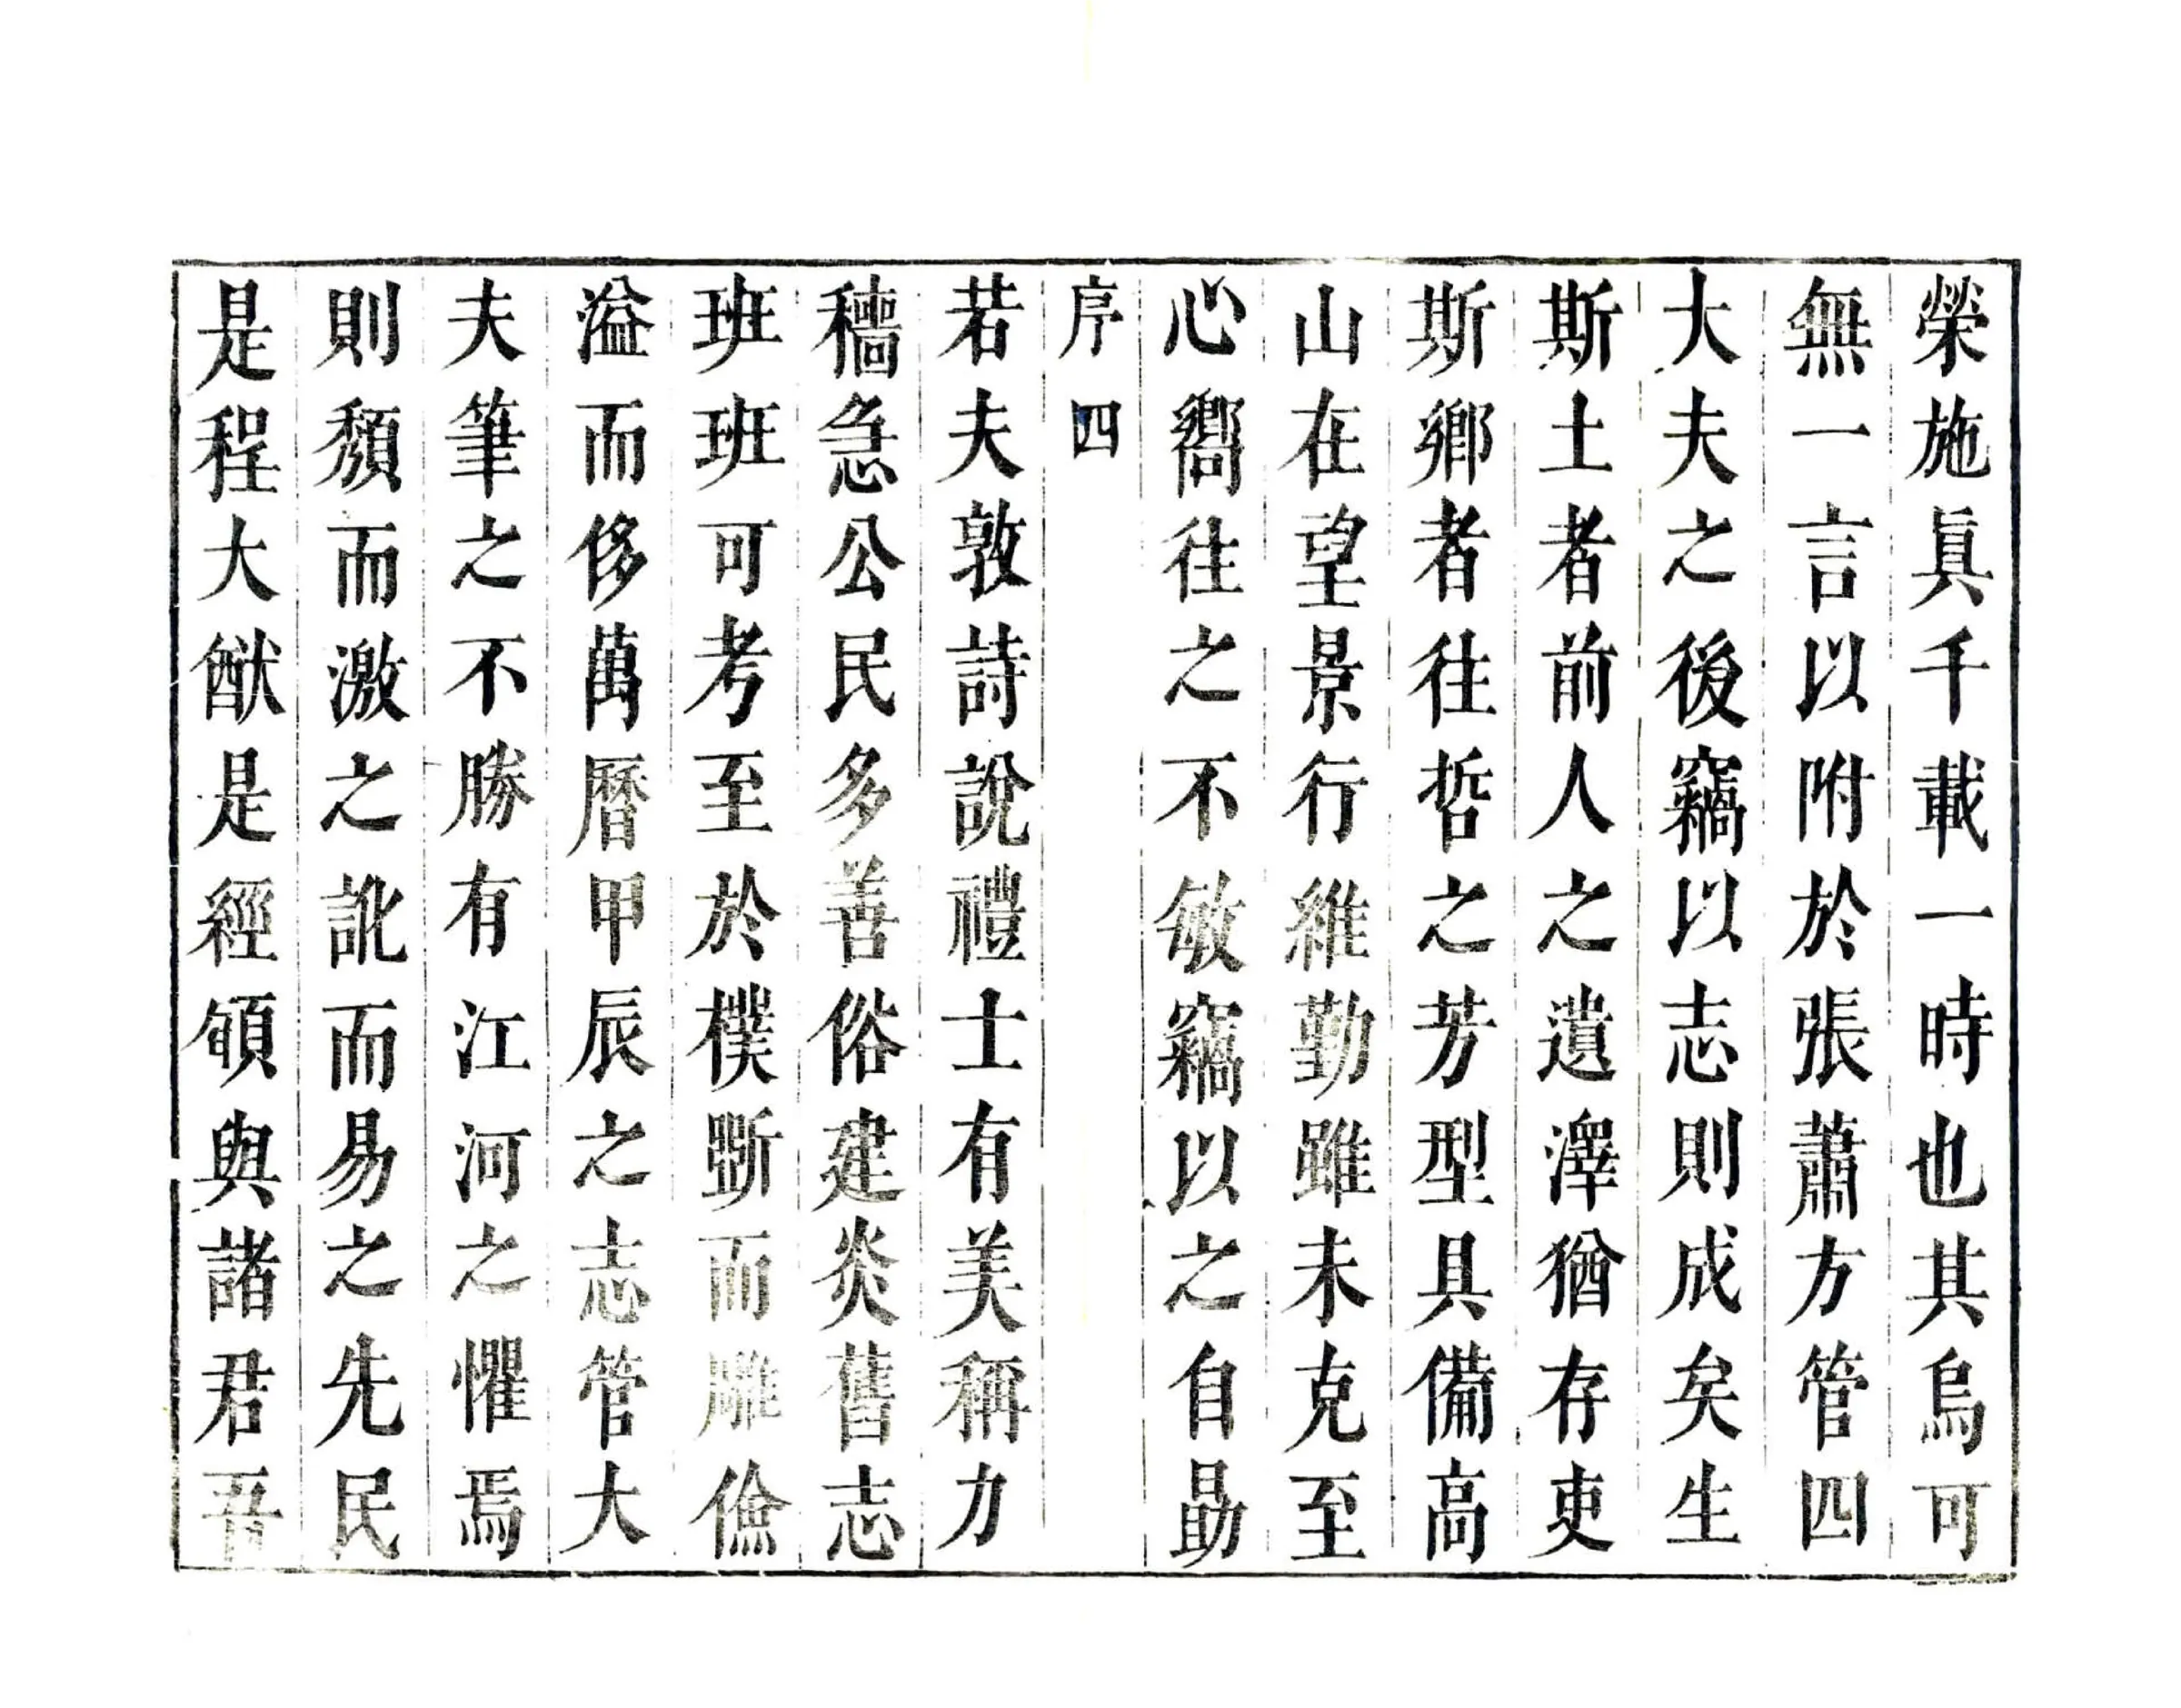 榮施眞千載一時也其烏可
無一言以附於張蕭方管四
大夫之後竊以志則成矣生
斯土者前人之遺澤猶存吏
斯鄉者往哲之芳型具備高
山在望景行維勤雖未克至
心嚮往之不敏竊以之自勗
序四
若夫敦詩說禮士有美稱力
穡急公民多善俗建炎舊志
班班可考至於樸斵而雕儉
溢而侈萬曆甲辰之志管大
夫筆之不勝有江河之懼焉
則頹而激之訛而易之先民
是程大猷是經領與諸君吾